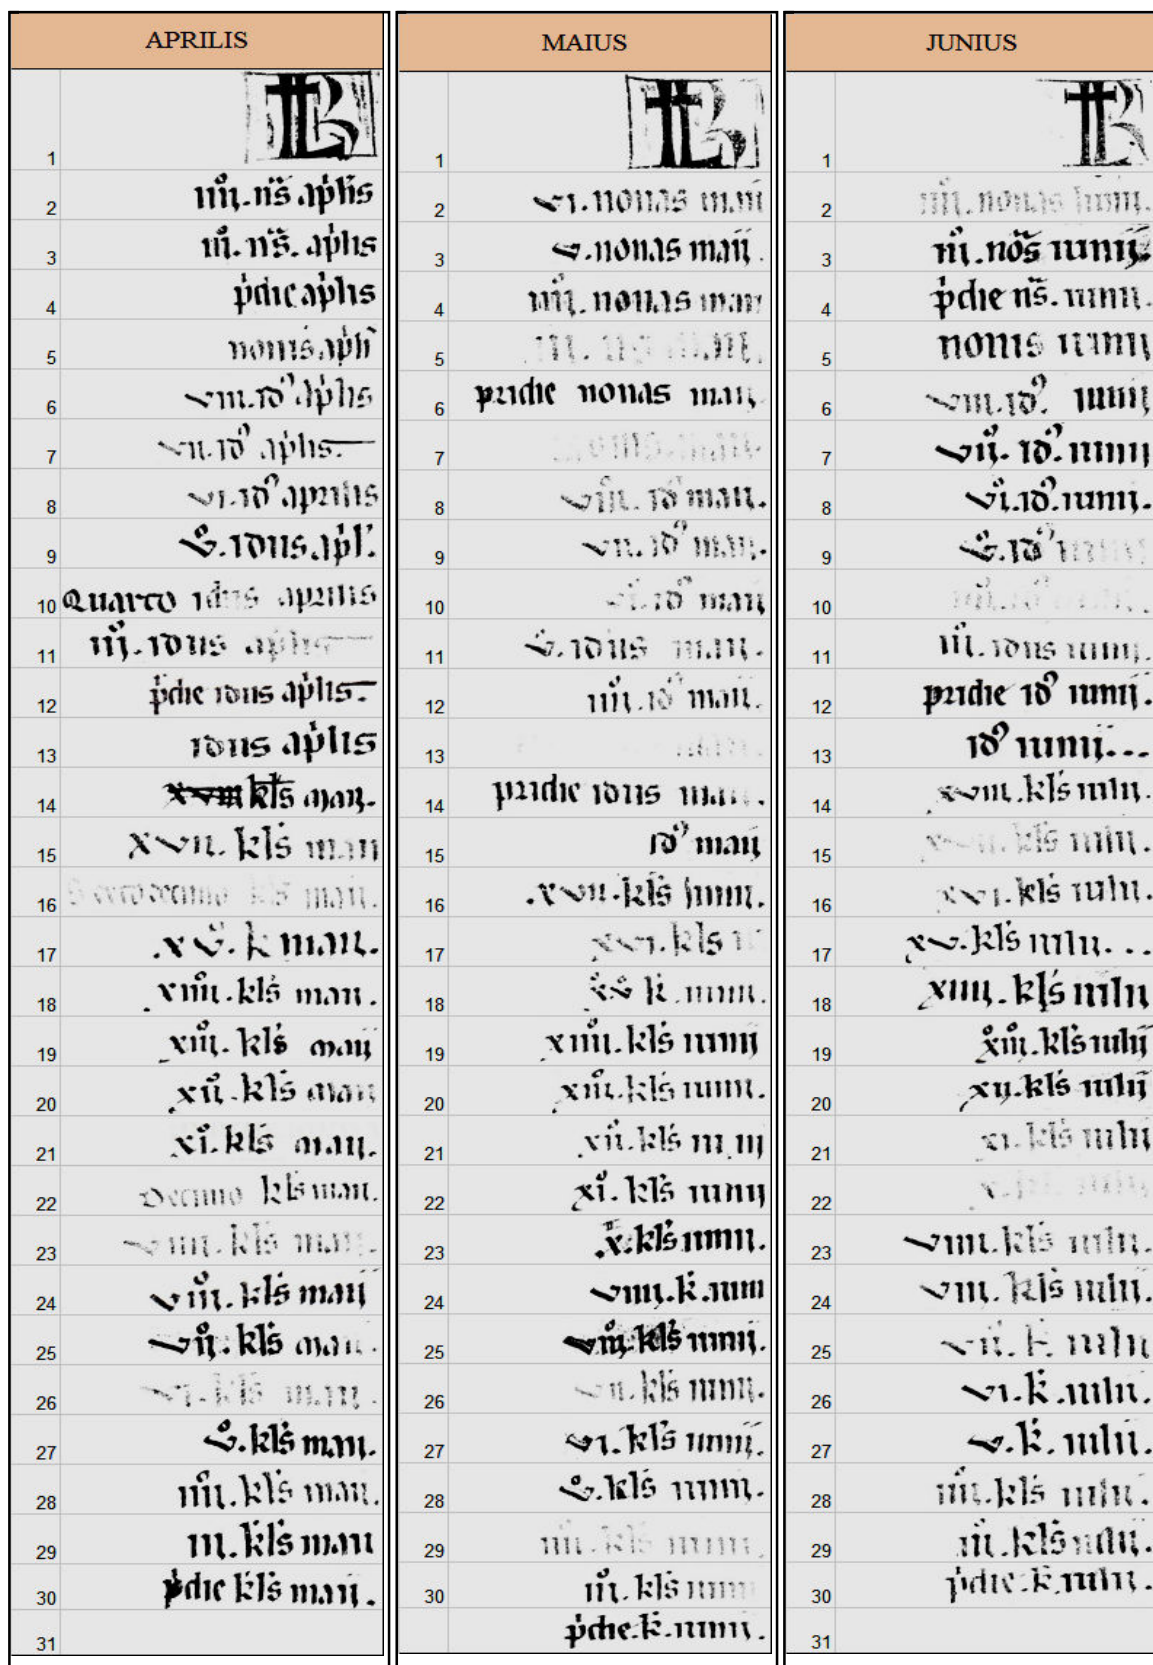 APRILIS
1 KL
2 iiii. ns aplis
3 iii. ns. aplis
4 pdie aplis
5 nonis apl
6 viii. id aplis
7 vii. id aplis.
8 vi. id aprilis
9 v. idus apl.
10 Quarto idus aprilis
11 iii. idus aplis
12 pdie idus aplis.
13 idus aplis
14 xviii kls maii.
15 xvii. kls maii
16 Sextodecimo kls maii.
17 .xv. k maii.
18 xiiii. kls maii.
19 xiii. kls maii
20 xii. kls maii
21 xi. kls maii.
22 Decimo kls maii.
23 viiii. kls maii.
24 viii. kls maii
25 vii. kls maii.
26 vi. kls maii.
27 v. kls maii.
28 iiii. kls maii.
29 iii. kls maii
30 pdie kls maii.
31
MAIUS
1 KL
2 vi. nonas maii
3 v. nonas maii.
4 iiii. nonas maii
5 iii. ns maii.
6 pridie nonas maii.
7 nonis maii.
8 viii. id maii.
9 vii. id maii.
10 vi. id maii
11 v. idus maii.
12 iiii. id maii.
13
14 pridie idus maii.
15 id maii
16 .xvii. kls iunii.
17 xvi. kls
18 xv k. iunii.
19 xiiii. kls iunii
20 xiii. kls iunii.
21 xii. kls iunii
22 xi. kls iunii
23 x. kls iunii.
24 viiii. k. iunii
25 viii. kls iunii.
26 vii. kls iunii.
27 vi. kls iunii.
28 v. kls iunii.
29 iiii. kls iunii.
30 iii. kls iunii
pdie. k. iunii.
JUNIUS
1 KL
2 iiii. nonas iunii.
3 iii. nos iunii.
4 pdie ns. iunii.
5 nonis iunii
6 viii. id. iunii
7 vii. id. iunii
8 vi. id. iunii.
9 v. id iunii
10 iiii. id
11 iii. idus iunii.
12 pridie id iunii.
13 id iunii...
14 xviii. kls iulii.
15 xvii. kls iulii.
16 xvi. kls iulii.
17 xv. kls iulii...
18 xiiii. kls iulii
19 xiii. kls iulii
20 xii. kls iulii
21 xi. kls iulii
22 x. kls iulii
23 viiii. kls iulii.
24 viii. kls iulii.
25 vii. k. iulii
26 vi. k. iulii.
27 v. k. iulii.
28 iiii. kls iulii.
29 iii. kls iulii.
30 pdie. k. iulii.
31